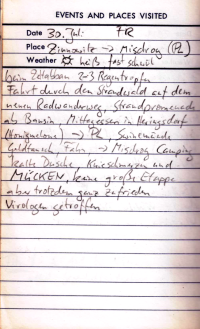 EVENTS AND PLACES VISITED
Date 30. Juli FR
Place Zinnowitz → Misdroy (PL)
Weather heiß, fast schwül
beim Zeltabbau 2-3 Regentropfen
Fahrt durch den Strandwald auf dem
neuen Radwanderweg, Strandpromenade
ab Bansin, Mittagessen in Heringsdorf
(Honigmelone) → PL, Swinemünde
Geldtausch, Fähre, → Misdroy Camping
kalte Dusche, Knieschmerzen und
MÜCKEN, keine große Etappe
aber trotzdem ganz zufrieden
Virologen getroffen